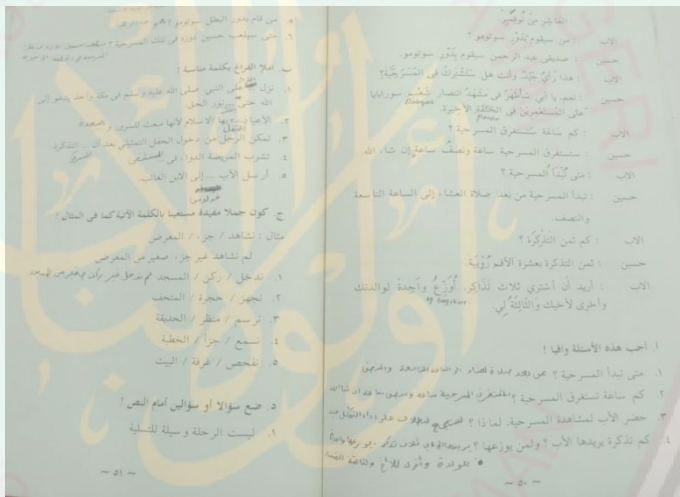 العاشر من نوفمبر
الاب : من سيقوم بدور سوتومو ؟
حسين : صديقي عبد الرحمن سيقوم بدور سوتومو.
الاب : هذا رأي جيد وأنت هل ستشترك في المسرحية؟
حسين : نعم، يا أبي سأظهر في مشهد انتصار شعب سورابايا
على المستعمرين في الحلقة الأخيرة.
الاب : كم ساعة تستغرق المسرحية ؟
حسين : ستستغرق المسرحية ساعة ونصف ساعة إن شاء الله.
الاب : متى تبدأ المسرحية ؟
حسين : تبدأ المسرحية من بعد صلاة العشاء إلى الساعة التاسعة
والنصف.
الاب : كم ثمن التذكرة ؟
حسين : ثمن التذكرة بعشرة الآف روبية.
الاب : أريد أن أشتري ثلاث تذاكر، أوزع واحدة لوالدتك
وأخرى لأخيك والثالثة لي.
أ. أجب هذه الأسئلة وافيا !
١. متى تبدأ المسرحية ؟
٢. كم ساعة تستغرق المسرحية ؟
٣. حضر الأب لمشاهدة المسرحية، لماذا ؟
٤. كم تذكرة يريدها الأب ؟ ولمن يوزعها ؟
~ ٥٠ ~
٥. من قام بدور البطل سوتومو ؟
٦. متى سيلعب حسين دوره في تلك المسرحية ؟
ب. املأ الفراغ بكلمة مناسبة !
١. نزل ... على النبي صلى الله عليه وسلم في مكة وأخذ يدعو إلى
الله حتى ... نور الحق
٢. الأعياد ... بها الاسلام لأنها مبعث للسرور و
٣. تمكن الرجل من دخول الحفل التمثيلي بعد أن ... التذكرة.
٤. تشرب المريضة الدواء في
٥. أرسل الأب ... إلى الابن الغائب.
ج. كون جملا مفيدة مستعينا بالكلمة الآتية كما في المثال !
مثال : نشاهد / جزء / المعرض
لم نشاهد غير جزء صغير من المعرض
١. تدخل / ركن / المسجد
٢. تجهز / حجرة / المتحف
٣. ترسم / منظر / الحديقة
٤. نسمع / جزأ / الخطبة
٥. نفحص / غرفة / البيت
د. ضع سؤالا أو سؤالين أمام النص !
١. ليست الرحلة وسيلة للتسلية
~ ٥١ ~